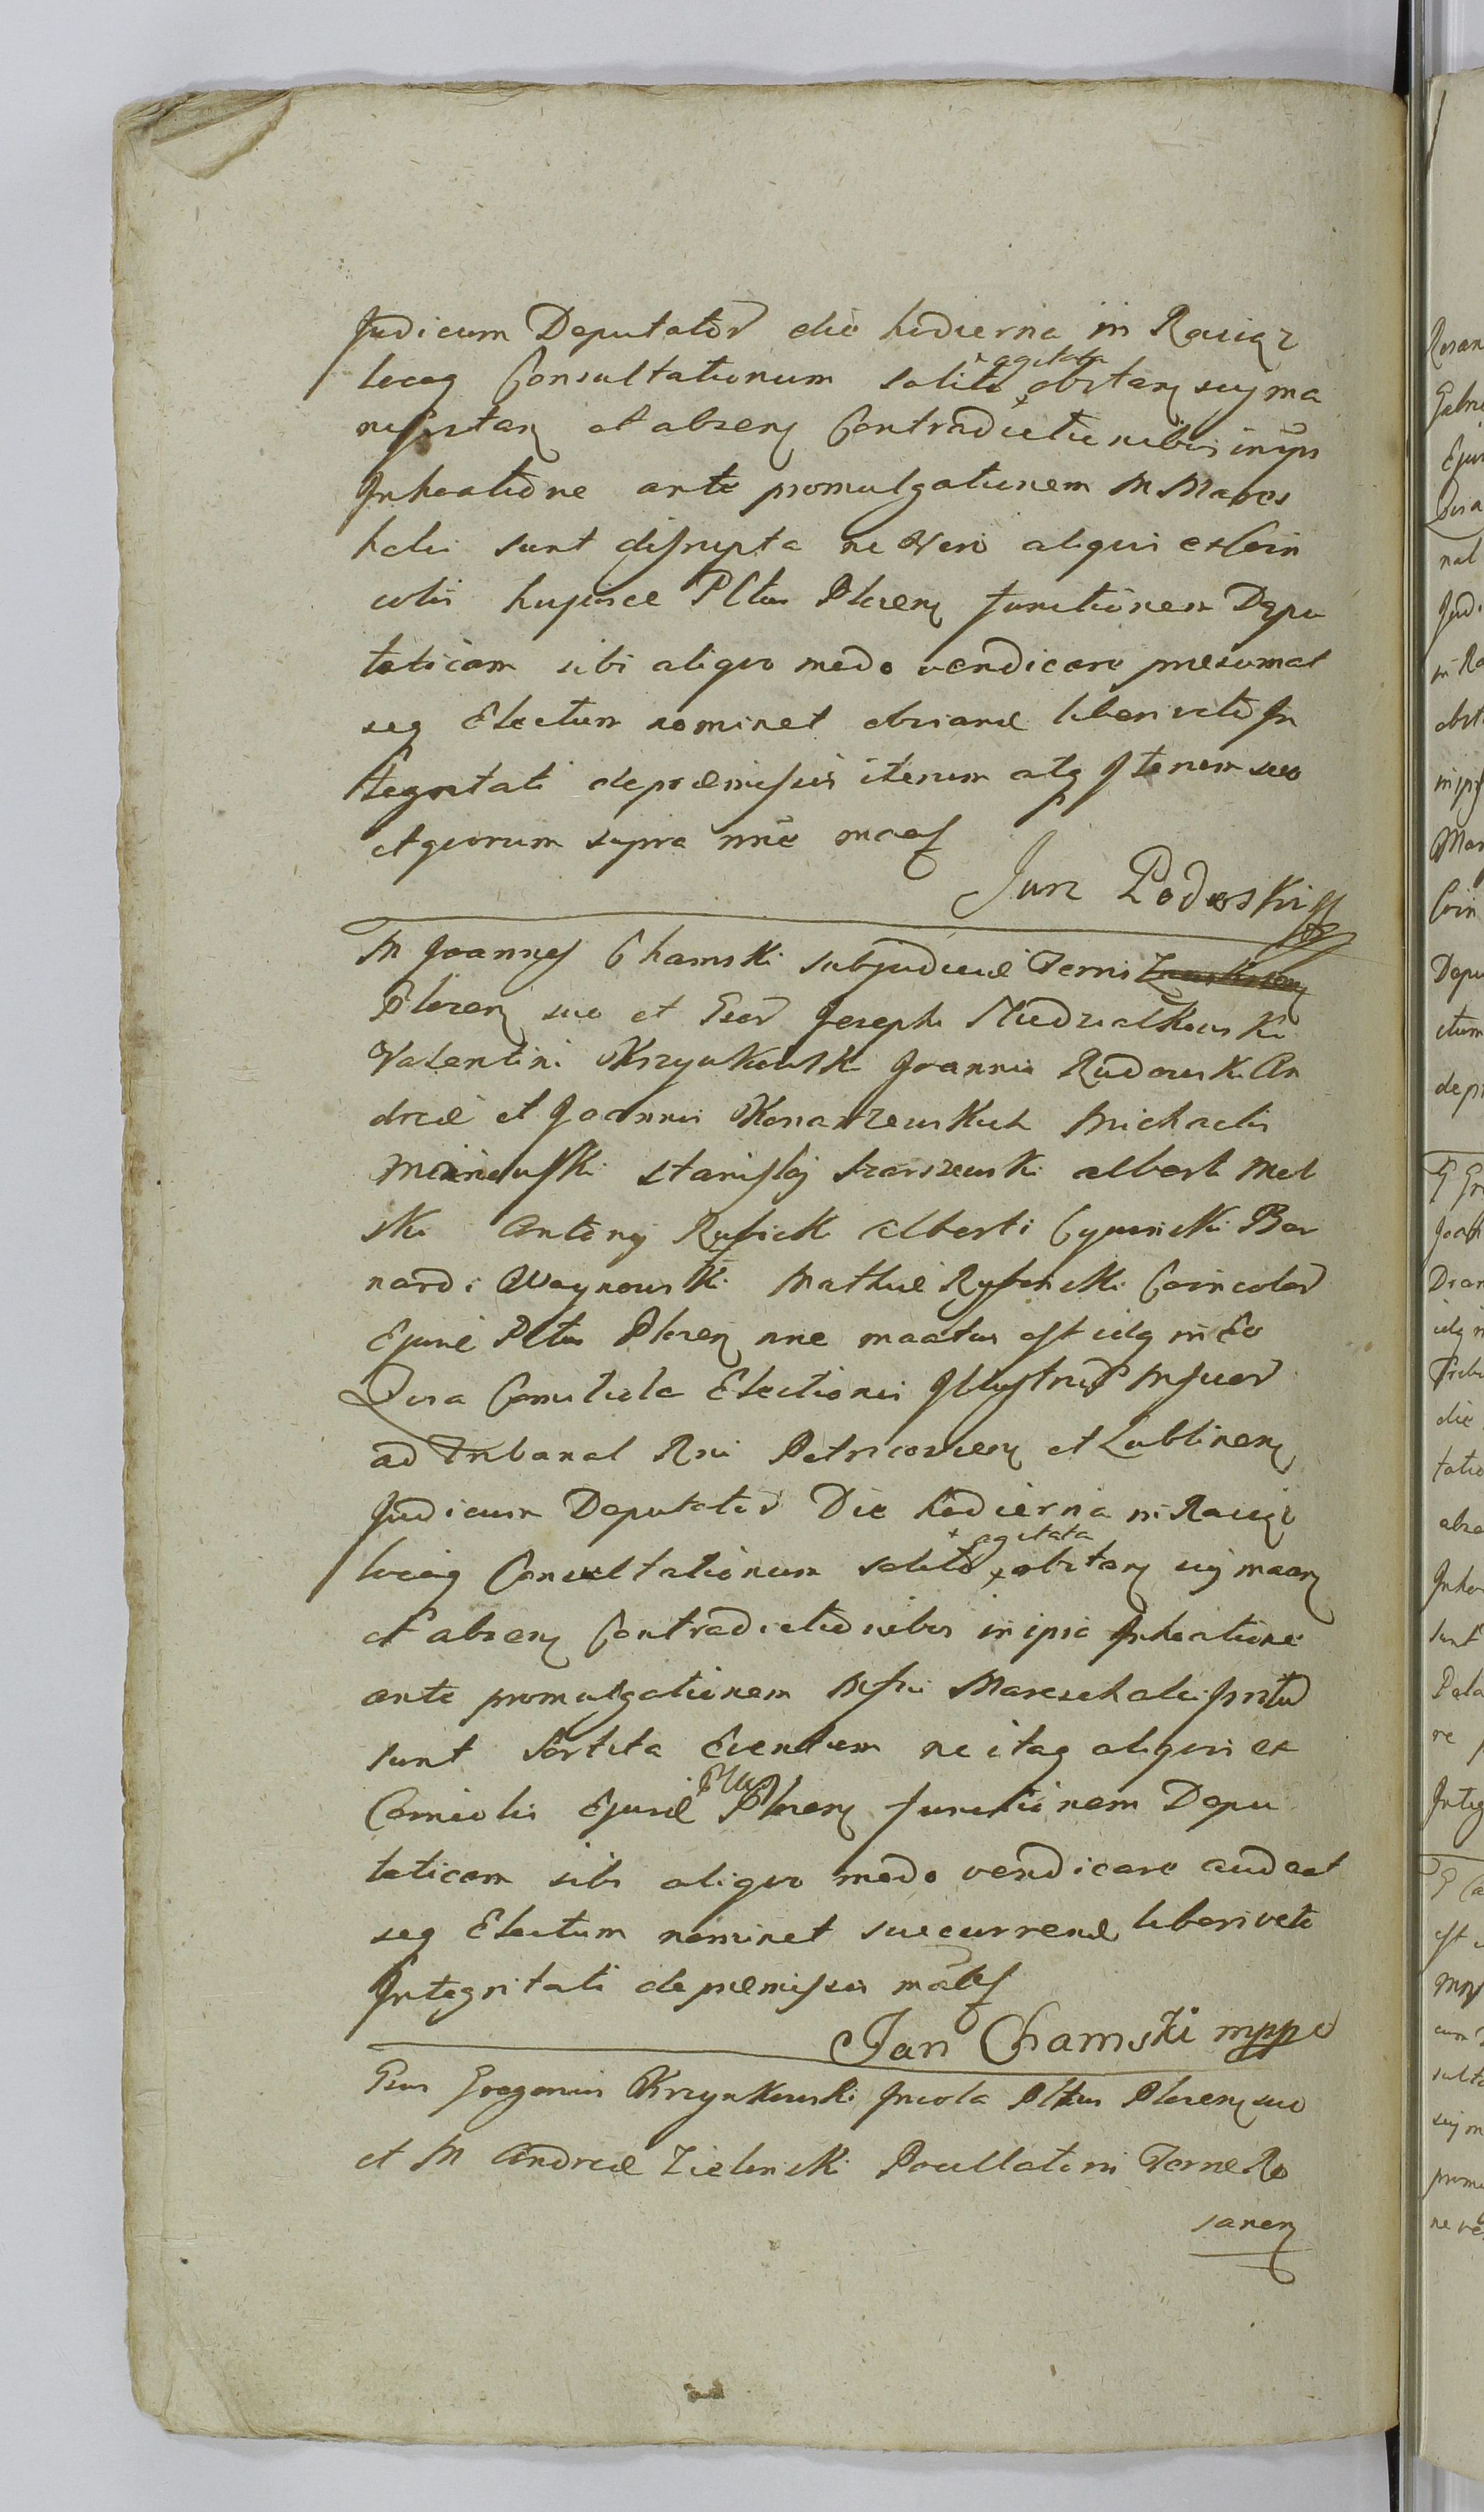 Judicum Deputator die hodierna in Raciąz
locoq Consultationum solito + agitata obstan suy ma
nifestan et absen Contradictionibus in ips
Inhoatione ante promulgationem M Mares
halci sunt disrupta ne Vero aliqui ex Coin
colis hujusce Pltus Plocen functionem Depu
taticam sibi aliquo modo vendicare presumat
seq Electum nominet obviand liberi veto In
tegritati depræmissis iterum atq Iterum suo
et quorum supra nne maes
Jan Podoski
M Joannes Chamski subjudice Terris
Plocen suo et Gsor Josephi Niedzialkowski
Valentini Krzynkowski Joannis Rudowski An
dreæ et Joannis Konarzewskich Michaelis
stanislaj szarszewski alberti Mel
ski Antonij Rusicki Alberti Cywinski Ber
nardi Woynowski Mathiæ Coincolar
Ejusd Pltus Plocen nne maatus est idq in Eo
Quia Comitiola Electionis Illustrium Mficor
ad Tribunal Rni Petricovien et Lublinen
Judicum Deputator Die hodierna in Raciąz
locoq Consultationum solito + agitata obstan suy maan
et absen Contradictionibus in ipsa Inhoatione
ante promulgationem Mfci Mareschalci
sunt sortita Eventum ne itaq aliqui ex
Comicolis Ejusd Pltus Plocen functionem Depu
taticam sibi aliquo modo vendicare audeat
seq Electum nominet succurrend liberi veto
Integritati de præmissis mates
Jan Chamski mppa
Gsus Gregorius Krzynkowski Incola Pltus Plocen suo
et M Andreæ Zielinski Pocillatoris Terræ Ro
sanen